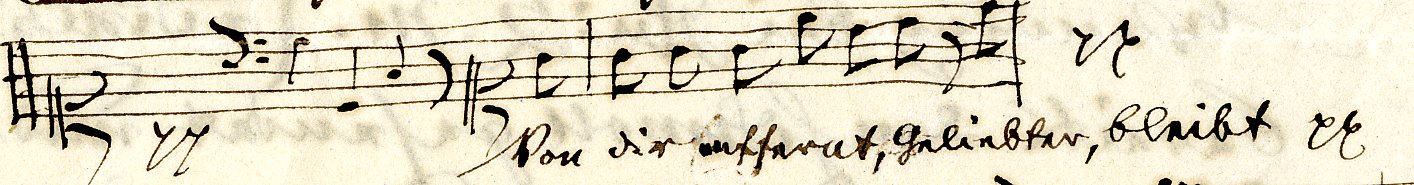 pp Von dir entfernt, Geliebter, bleibt pp